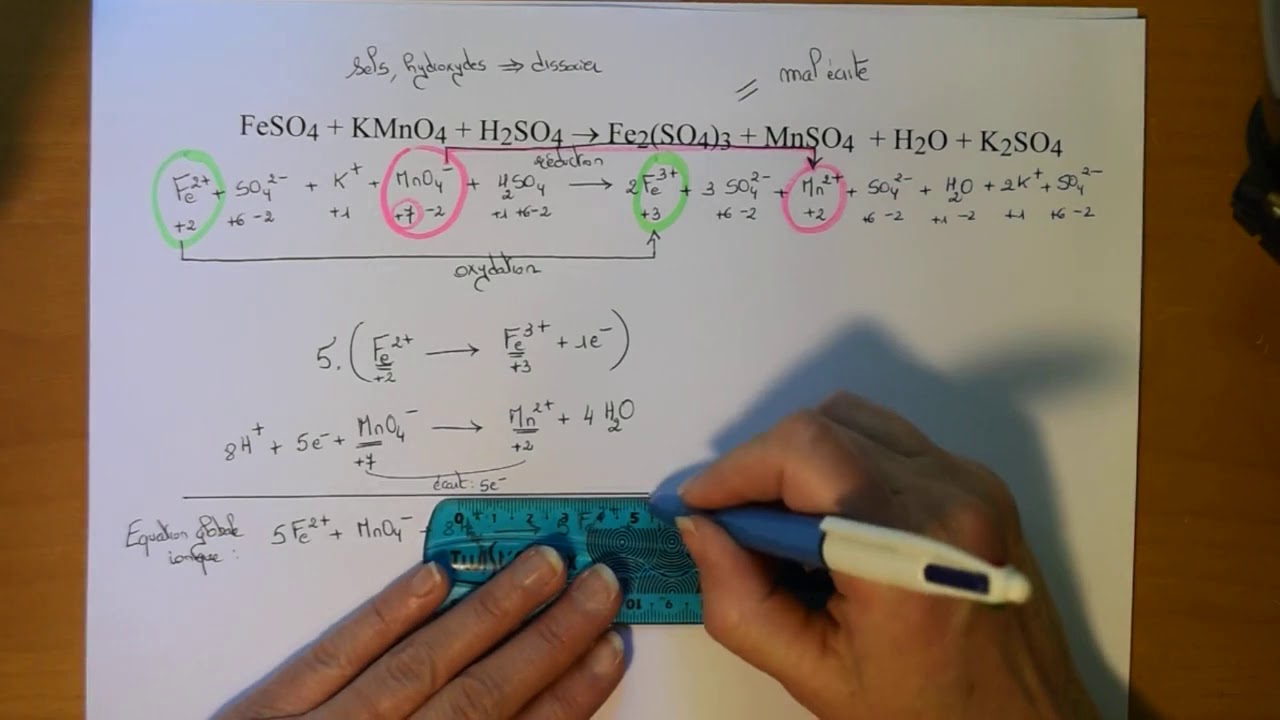 Sels, hydroxydes ⇒ dissocier
mal écrite
FeSO4 + KMnO4 + H2SO4 → Fe2(SO4)3 + MnSO4 + H2O + K2SO4
réduction
Fe²⁺ + SO₄²⁻ + K⁺ + MnO₄⁻ + H₂SO₄ → 2Fe³⁺ + 3 SO₄²⁻ + Mn²⁺ + SO₄²⁻ + H₂O + 2K⁺ + SO₄²⁻
+2 +6 -2 +1 +7 -2 +1 +6 -2 +3 +6 -2 +2 +6 -2 +1 -2 +1 +6 -2
oxydation
5.(Fe²⁺ → Fe³⁺ + 1e⁻)
+2 +3
8H⁺ + 5e⁻ + MnO₄⁻ → Mn²⁺ + 4 H₂O
+7 +2
écart : 5e⁻
Equation globale
ionique :
5Fe²⁺ + MnO₄⁻ + 8H⁺ → 5 Fe
0 1 2 3 4 5
10 9